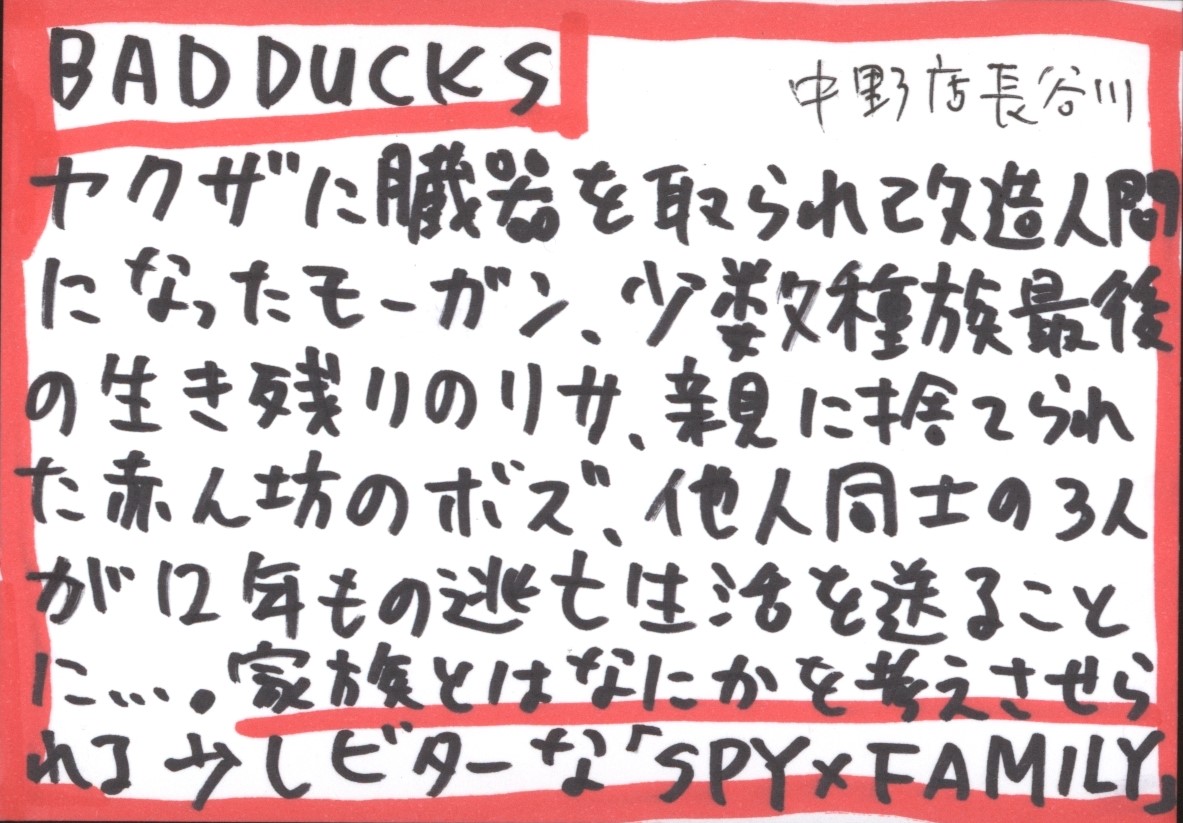 BAD DUCKS
中野店長谷川
ヤクザに臓器を取られて改造人間
になったモーガン、少数種族最後
の生き残りのリサ、親に捨てられ
た赤ん坊のボズ、他人同士の3人
が12年もの逃亡生活を送ること
に…。家族とはなにかを考えさせら
れる少しビターな「SPY×FAMILY」